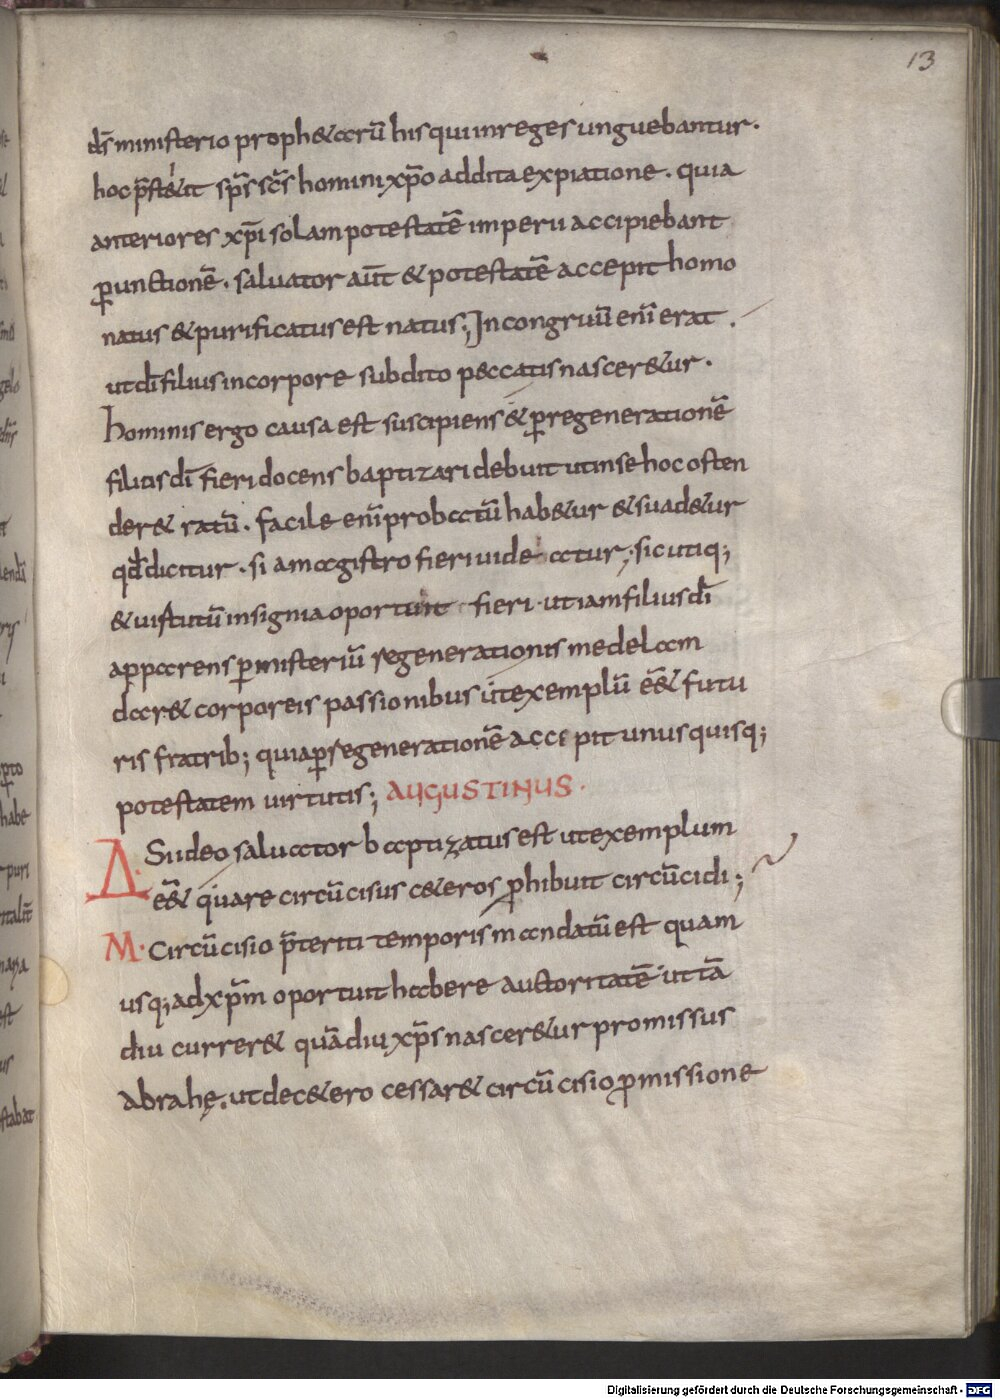 13
ds̄ ministerio proph&arū his qui in reges unguebantur.
hoc p̄stetit sp̄s sc̄s homini xp̄o addita expiatione. quia
anteriores xp̄i solam potestatē imperii accipiebant
ꝑ unctionē. saluator aūt & potestatē accepit homo
natus & purificatus est natus; Incongruū enī erat.
ut dī filius in corpore subdito peccatis nascer&ur.
hominis ergo causa est suscipiens & ꝑ regenerationē
filius dī fieri docens baptizari debuit ut in se hoc osten
der& ratū. facile enī probatū hab&ur & suad&ur
qđ dicitur. si a magistro fieri uideatur; sic utiq;
& uirtutū insignia oportuit fieri. ut iam filius dī
apparens ꝑ misteriū regenerationis medelam
dar& corporeis passionibus ut exemplū ēē& futu
ris fratrib; quia ꝑ regenerationē accepit unusquisq;
potestatem uirtutis; AUGUSTINUS.
A Si ideo saluator baptizatus est ut exemplum
ēē& quare circūcisus c&eros ꝓhibuit circūcidi;
M. Circūcisio p̄teriti temporis mandatū est quam
usq; ad xp̄m oportuit habere auctoritatē ut tā
diu currer& quādiu xp̄s nascer&ur promissus
abrahę. ut de c&ero cessar& circūcisio ꝓmissione
Digitalisierung gefördert durch die Deutsche Forschungsgemeinschaft - DFG